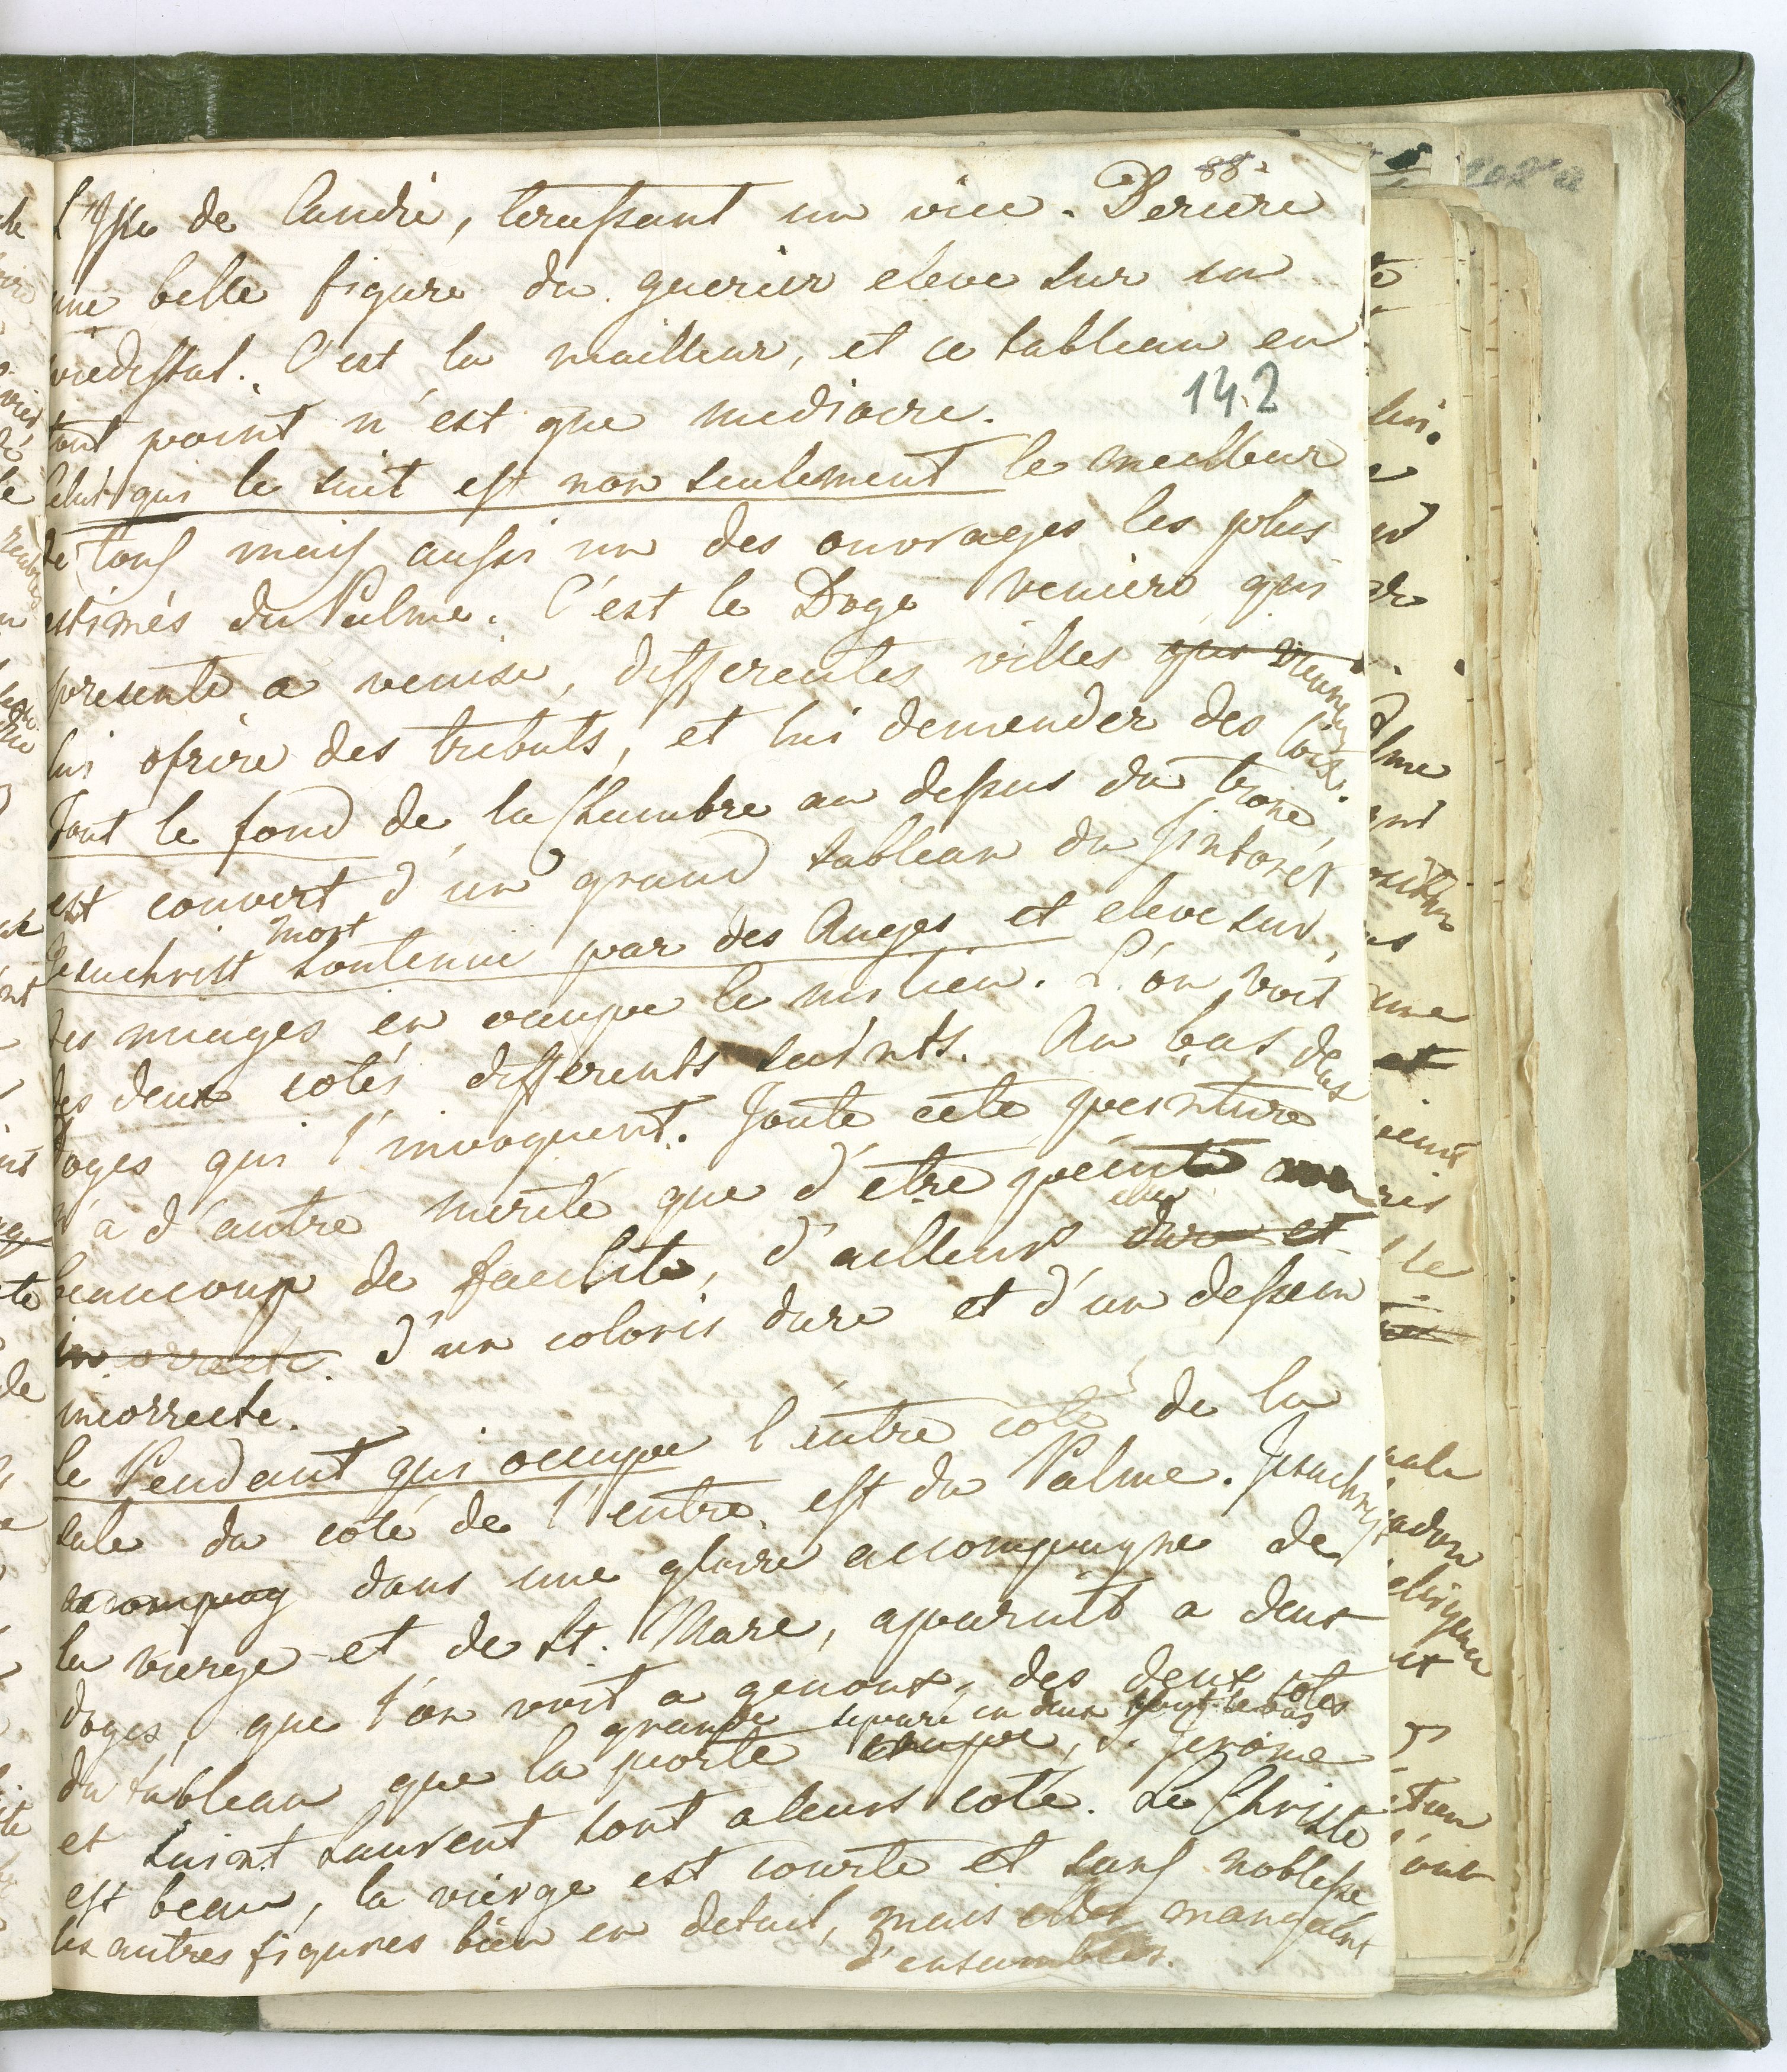 88
L'Isle de Candie, terassant un vice. Deriere
une belle figure du guerier eleve sur un
piedestal. C'est la meilleur, et ce tableau en
142
tout point n'est que mediocre.
Celui qui le suit est non seulement le meilleur
de tous mais aussi un des ouvrages les plus
estimés du Palme. C'est le Doge Veniero qui
presente a venise, differentes villes qui viennent
lui ofrire des tributs, et lui demender des loix.
Tout le fond de la Chambre au dessus du trone,
est couvert d'un grand tableau du Tintoret
mort
Jesuchrist soutenue par des Anges et eleve sur
des nuages en occupe le milieu. L'on voit
des deux cotés differents saints. Au bas deux
doges qui l'invoquent. Toute cete peinture
n'a d'autre merite que d'etre peinte
beaucoup de facilite, d'ailleurs dur et
incorrecte. d'un coloris dure et d'un dessein
incorrecte.
le Pendant qui occupe l'entre coté de la
sale du coté de l'entre, est du Palme. Jesuchrist
accompag dans une gloire accompaigne de
la vierge et de St. Marc, aparait a deux
doges, que l'on voit a genoux, des deux cotes
grande separe en deux
du tableau que la porte occupe, S. Jerome
et saint Laurent sont a leurs coté. Le Christe
est beau, la vierge est courte et sans noblesse
les autres figures bien en detail, mais elles manquent
d'ensembles.